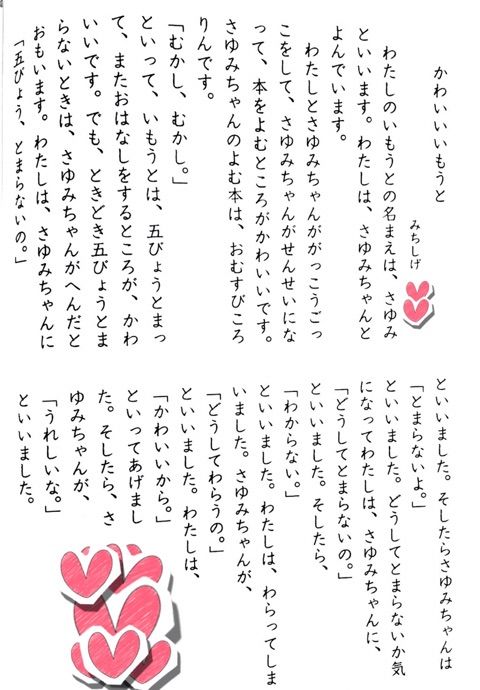 かわいいいもうと
みちしげ
わたしのいもうとの名まえは、さゆみ
といいます。わたしは、さゆみちゃんと
よんでいます。
わたしとさゆみちゃんががっこうごっ
こをして、さゆみちゃんがせんせいにな
って、本をよむところがかわいいです。
さゆみちゃんのよむ本は、おむすびころ
りんです。
「むかし、むかし。」
といって、いもうとは、五びょうとまっ
て、またおはなしをするところが、かわ
いいです。でも、ときどき五びょうとま
らないときは、さゆみちゃんがへんだと
おもいます。わたしは、さゆみちゃんに
「五びょう、とまらないの。」
といいました。そしたらさゆみちゃんは
「とまらないよ。」
といいました。どうしてとまらないか気
になってわたしは、さゆみちゃんに、
「どうしてとまらないの。」
といいました。そしたら、
「わからない。」
といいました。わたしは、わらってしま
いました。さゆみちゃんが、
「どうしてわらうの。」
といいました。わたしは、
「かわいいから。」
といってあげまし
た。そしたら、さ
ゆみちゃんが、
「うれしいな。」
といいました。